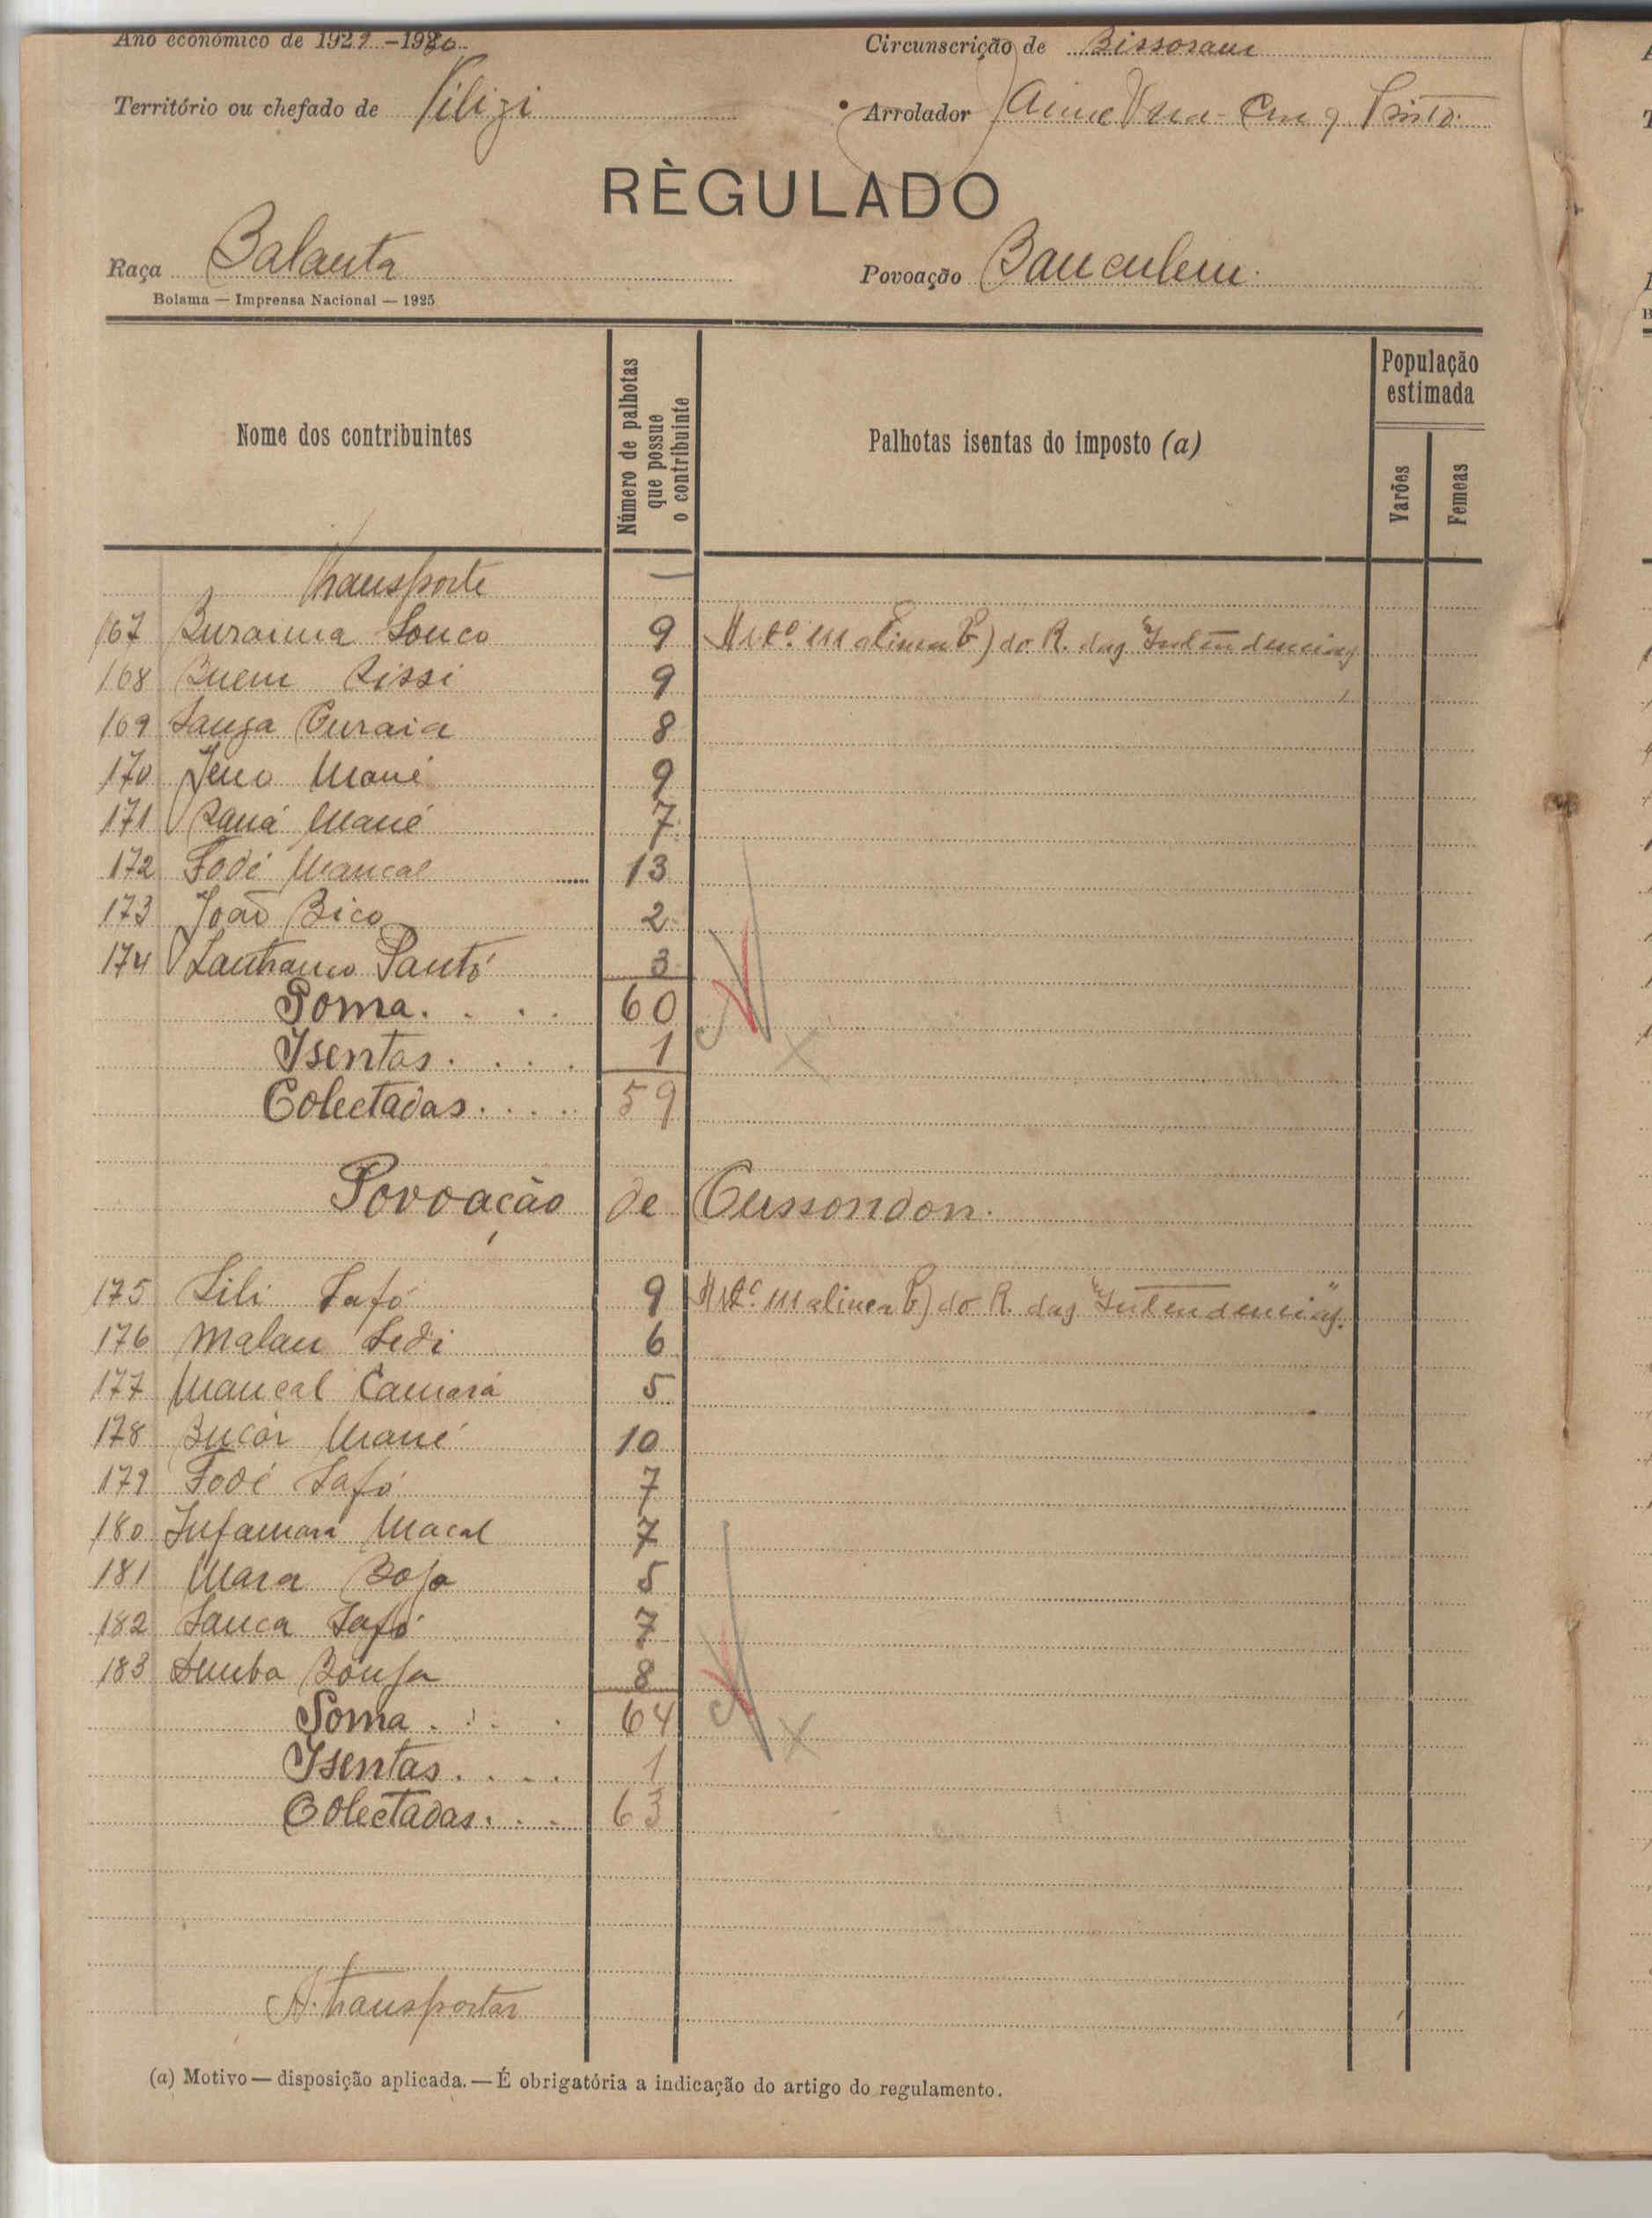 Ano económico de 1929-1930
Circunscrição de Bissoram
Território ou chefado de
Arrolador Jaime Vera-Cruz Pinto
RÈGULADO
Raça Balanta
Povoação Banculem
Bolama — Imprensa Nacional — 1925
Nome dos contribuintes
Número de palhotas que possue o contribuinte
Palhotas isentas do imposto (a)
População estimada
Varões
Femeas
Transporte —
167 Buraima Sonco 9 do R. das "Intendencias
168 Buem Sissi 9
169 Sanga Turaia 8
170 Jeno Mané 9
171 Saná Mané 7
172 Fodé Mancal 13
173 João Bico 2
174 Santó 3
Soma. . . . 60
Isentas. . . . 1
Colectadas. . . . 59
Povoação de Cussondon.
175 Sili Safó 9 do R. das "Intendencias".
176 Malan Sedi 6
177 Mancal Camará 5
178 Bucár Mané 10
179 Fodé Safó 7
180 Infamará Macal 7
181 Mara Bojo 5
182 Sanca Safó 7
183 Sumba 8
Soma. . . . 64
Isentas. . . . 1
Colectadas. . . 63
A. transportar
(a) Motivo — disposição aplicada. — É obrigatória a indicação do artigo do regulamento.